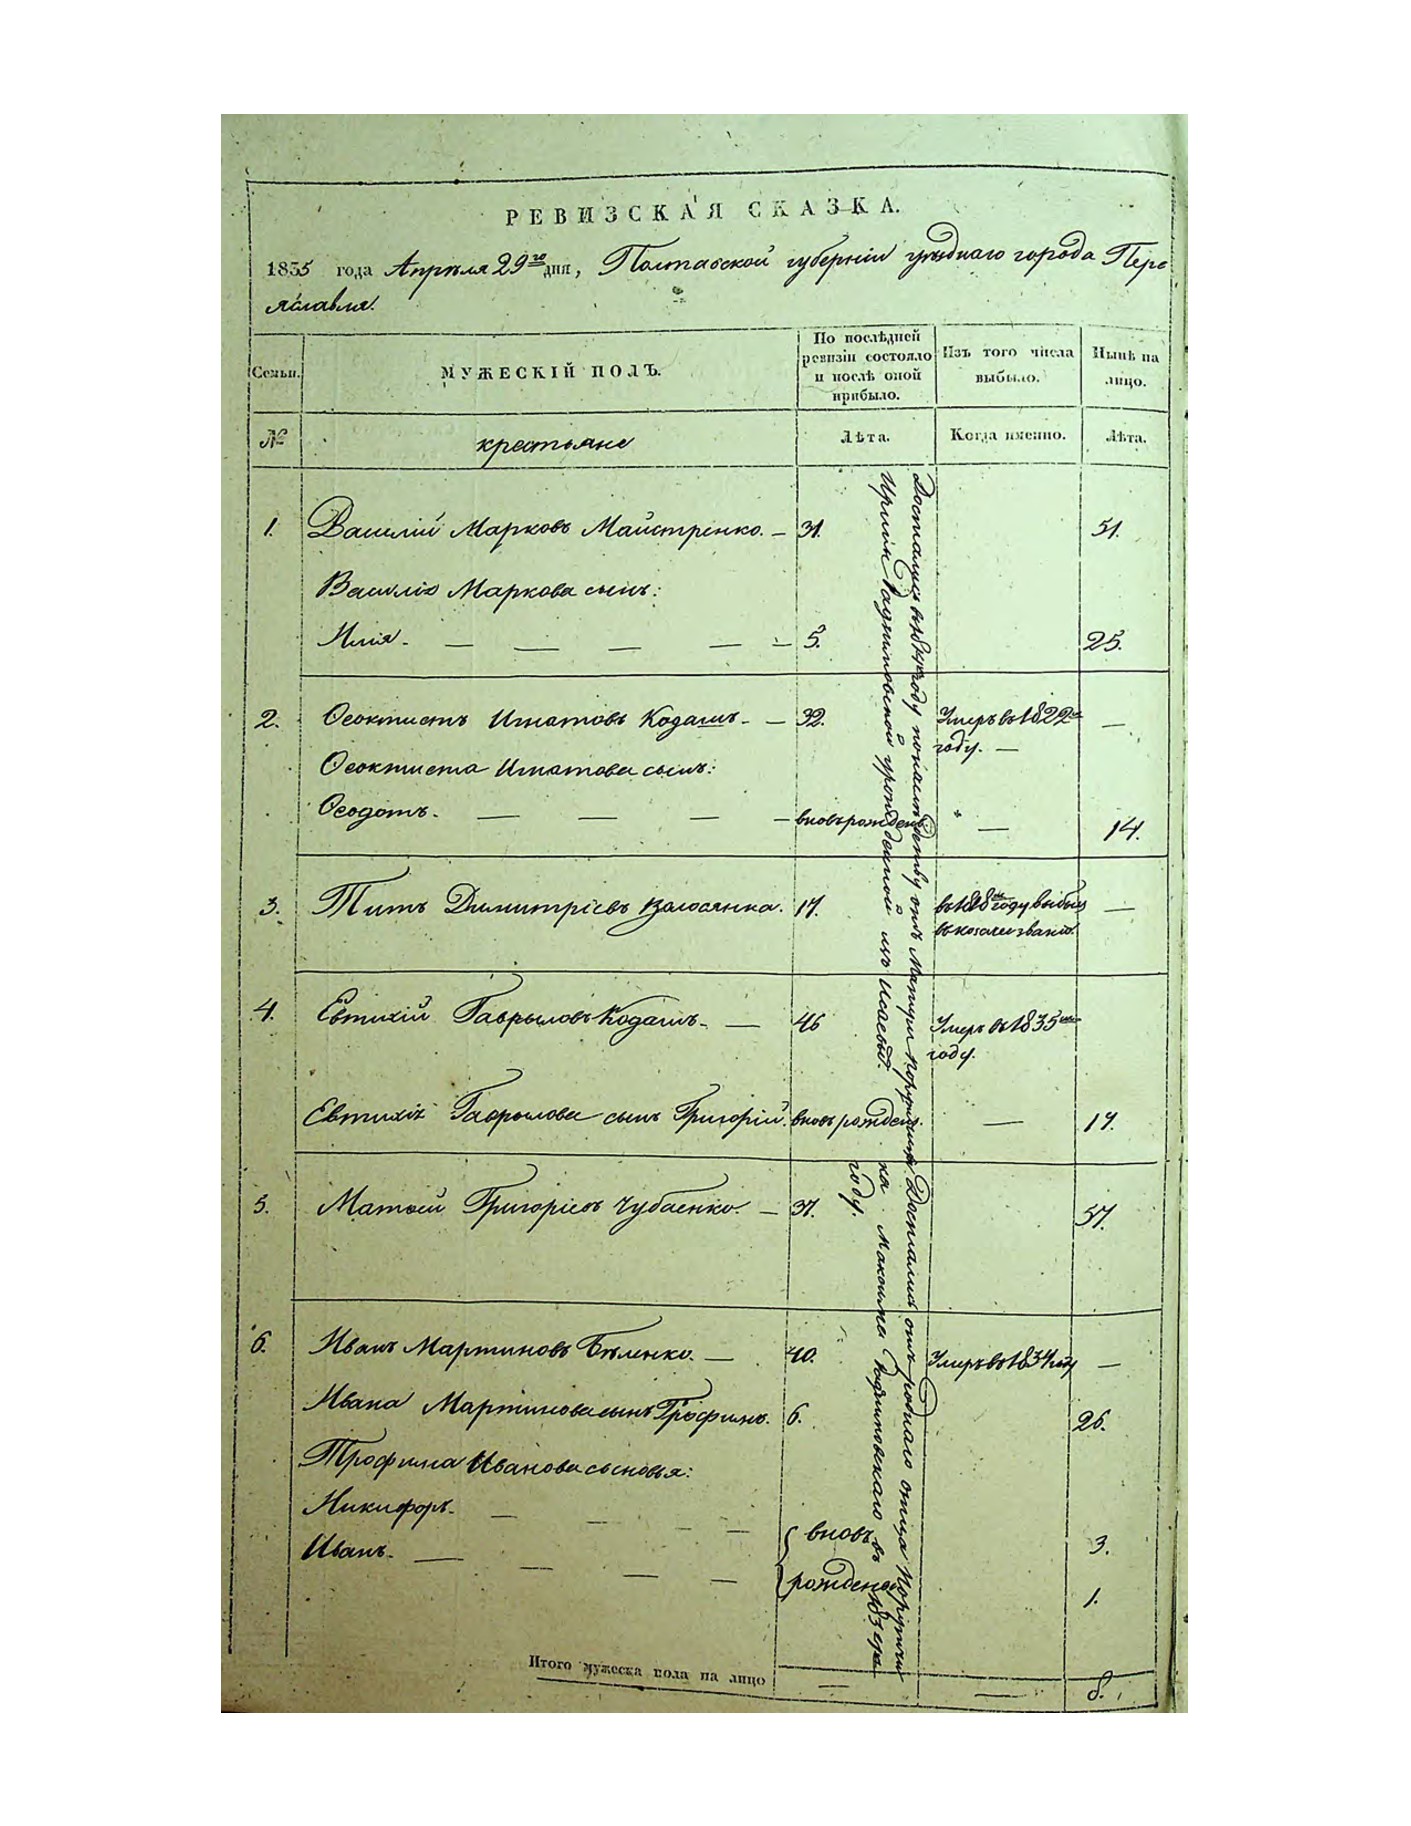 РЕВИЗСКАЯ СКАЗКА.
1835 года Апрѣля 29го дня, Полтавской губерніи уѣзднаго города Пере
яславля.
Семьи.
МУЖЕСКІЙ ПОЛЪ.
По послѣдней
ревизіи состояло
и послѣ оной
прибыло.
Изъ того числа
выбыло.
Нынѣ на
лицо.
№
крестьяне
Лѣта.
Когда именно.
Лѣта.
1. Василій Марковъ Майстренко. — 31. 51.
Василія Маркова сынъ:
Илія. — — — — — 5. 25.
2. Ѳеоктистъ Игнатовъ Кодашъ. — 32. Умеръ въ 1822мъ —
году. —
Ѳеоктиста Игнатова сынъ:
Ѳеодотъ. — — — — вновьрожденъ. — 14.
3. Титъ Димитріевъ Волосянка. 17. въ 1828мъ году выбылъ —
въ козачье званіе.
4. Евтихій Гаврыловъ Кодашъ. — 46 Умеръ въ 1835мъ
году.
Евтихія Гаврылова сынъ Григорій. вновьрожденъ. — 17.
5. Матѳей Григоріевъ Чубаенко. — 37. 57.
6. Иванъ Мартиновъ Бѣленко. — 40. Умеръ въ 1834 году —
Ивана Мартинова сынъ Трофимъ. 6. 26.
Трофима Иванова сыновья:
Никифоръ. — — — — вновь 3.
Иванъ. — — — — рождены 1.
Достались въ году по наслѣдству отъ Матери Порутчицы
Ирины Могиловской урожденной изъ Исаевыхъ.
Достались отъ роднаго отца Порутчи
ка Максима въ
году.
Итого мужеска пола на лицо — — 8.